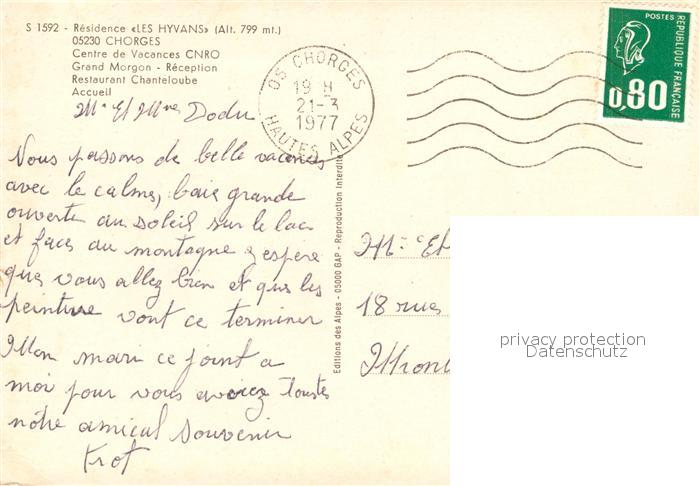 S 1592 - Résidence «LES HYVANS» (Alt. 799 mt.)
05230 CHORGES
Centre de Vacances CNRO
Grand Morgon - Réception
Restaurant Chanteloube
Accueil
05 CHORGES
19 H
21-3
1977
HAUTES ALPES
POSTES
RÉPUBLIQUE FRANÇAISE
0,80
Mr Et Mme Dodu
Nous passons de belle vacances
avec le calme, baie grande
ouverte au soleil sur le lac
et face au montagne j espère
que vous allez bien et que les
peinture vont ce terminer
Mon mari ce joint a
moi pour vous avoiez toustes
nôtre amical souvenir
Krof
Editions des Alpes - 05000 GAP - Reproduction Interdite
Mr Et
18 rue
privacy protection
Datenschutz